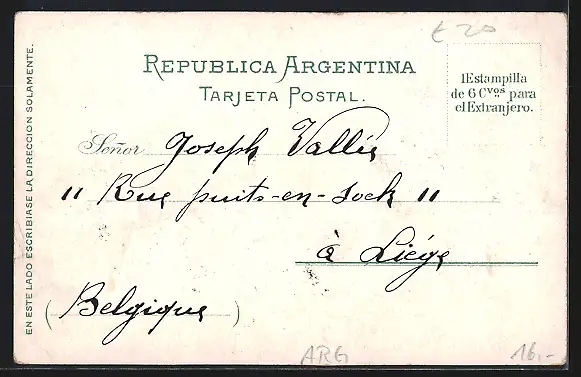 €20
REPUBLICA ARGENTINA
TARJETA POSTAL.
1 Estampilla
de 6 Cvos para
el Extranjero.
Señor Joseph Vallée
" Rue puits-en-Sock "
à Liége
(Belgique)
EN ESTE LADO ESCRIBIASE LA DIRECCION SOLAMENTE.
ARG
16.-